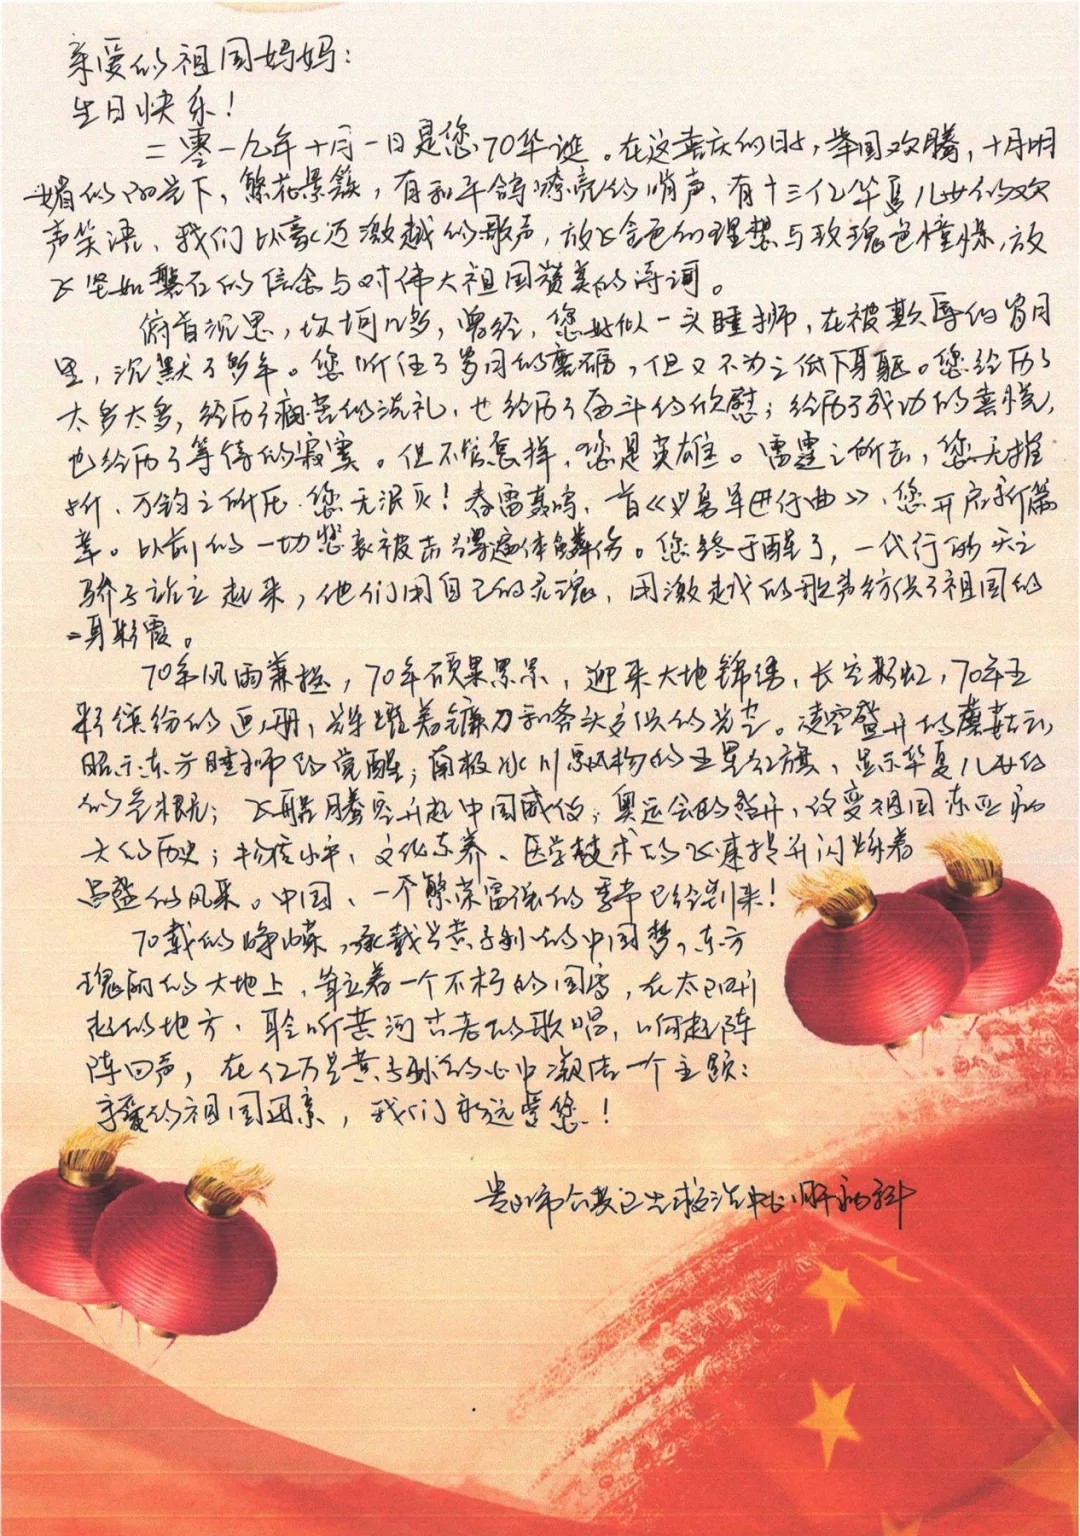 亲爱的祖国妈妈：
生日快乐！
二零一九年十月一日是您70华诞。在这喜庆的日子，举国欢腾，十月明
媚的阳光下，繁花景簇，有和平鸽嘹亮的哨声，有十三亿华夏儿女的欢
声笑语，我们以豪迈激越的歌声，放飞金色的理想与玫瑰色憧憬，放
飞坚如磐石的信念与对伟大祖国赞美的诗词。
俯首沉思，坎坷几多，曾经，您好似一头睡狮，在被欺辱的岁月
里，沉默了多年。您听任了岁月的磨砺，但又不为之低下身躯。您经历了
太多太多，经历了痛苦的洗礼，也经历了奋斗的欣慰；经历了成功的喜悦，
也经历了等待的寂寞。但不管怎样，您是英雄。雷霆之所击，您无摧
折，万钧之所压，您无泯灭！春雷轰鸣，首《义勇军进行曲》，您开启新篇
章。以前的一切被击得遍体鳞伤。您终于醒了，一代行的天之
骄子站立起来，他们用自己的灵魂，用激越的歌声纺织了祖国的
一身彩霞。
70年风雨兼程，70年硕果累累，迎来大地锦绣，长空彩虹，70年五
彩缤纷的画册，辉煌着镰刀和斧头交织的光芒。凌空盛开的蘑菇云，
昭示东方睡狮的觉醒；南极冰川飘扬的五星红旗，显示华夏儿女的
的；飞船腾空升起中国威仪；奥运会的召开，改变祖国东亚病
夫的历史；水平、文化素养、医学技术的飞速提升闪烁着
昌盛的风采。中国，一个繁荣富强的季节已经到来！
70载的峥嵘，承载炎黄子孙的中国梦，东方
瑰丽的大地上，耸立着一个不朽的国家，在太阳升
起的地方，聆听黄河古老的歌唱，响起阵
阵回声，在亿万炎黄子孙的心中凝结一个主题：
亲爱的祖国母亲，我们永远爱您！
贵阳市公共卫生救治中心肝病科